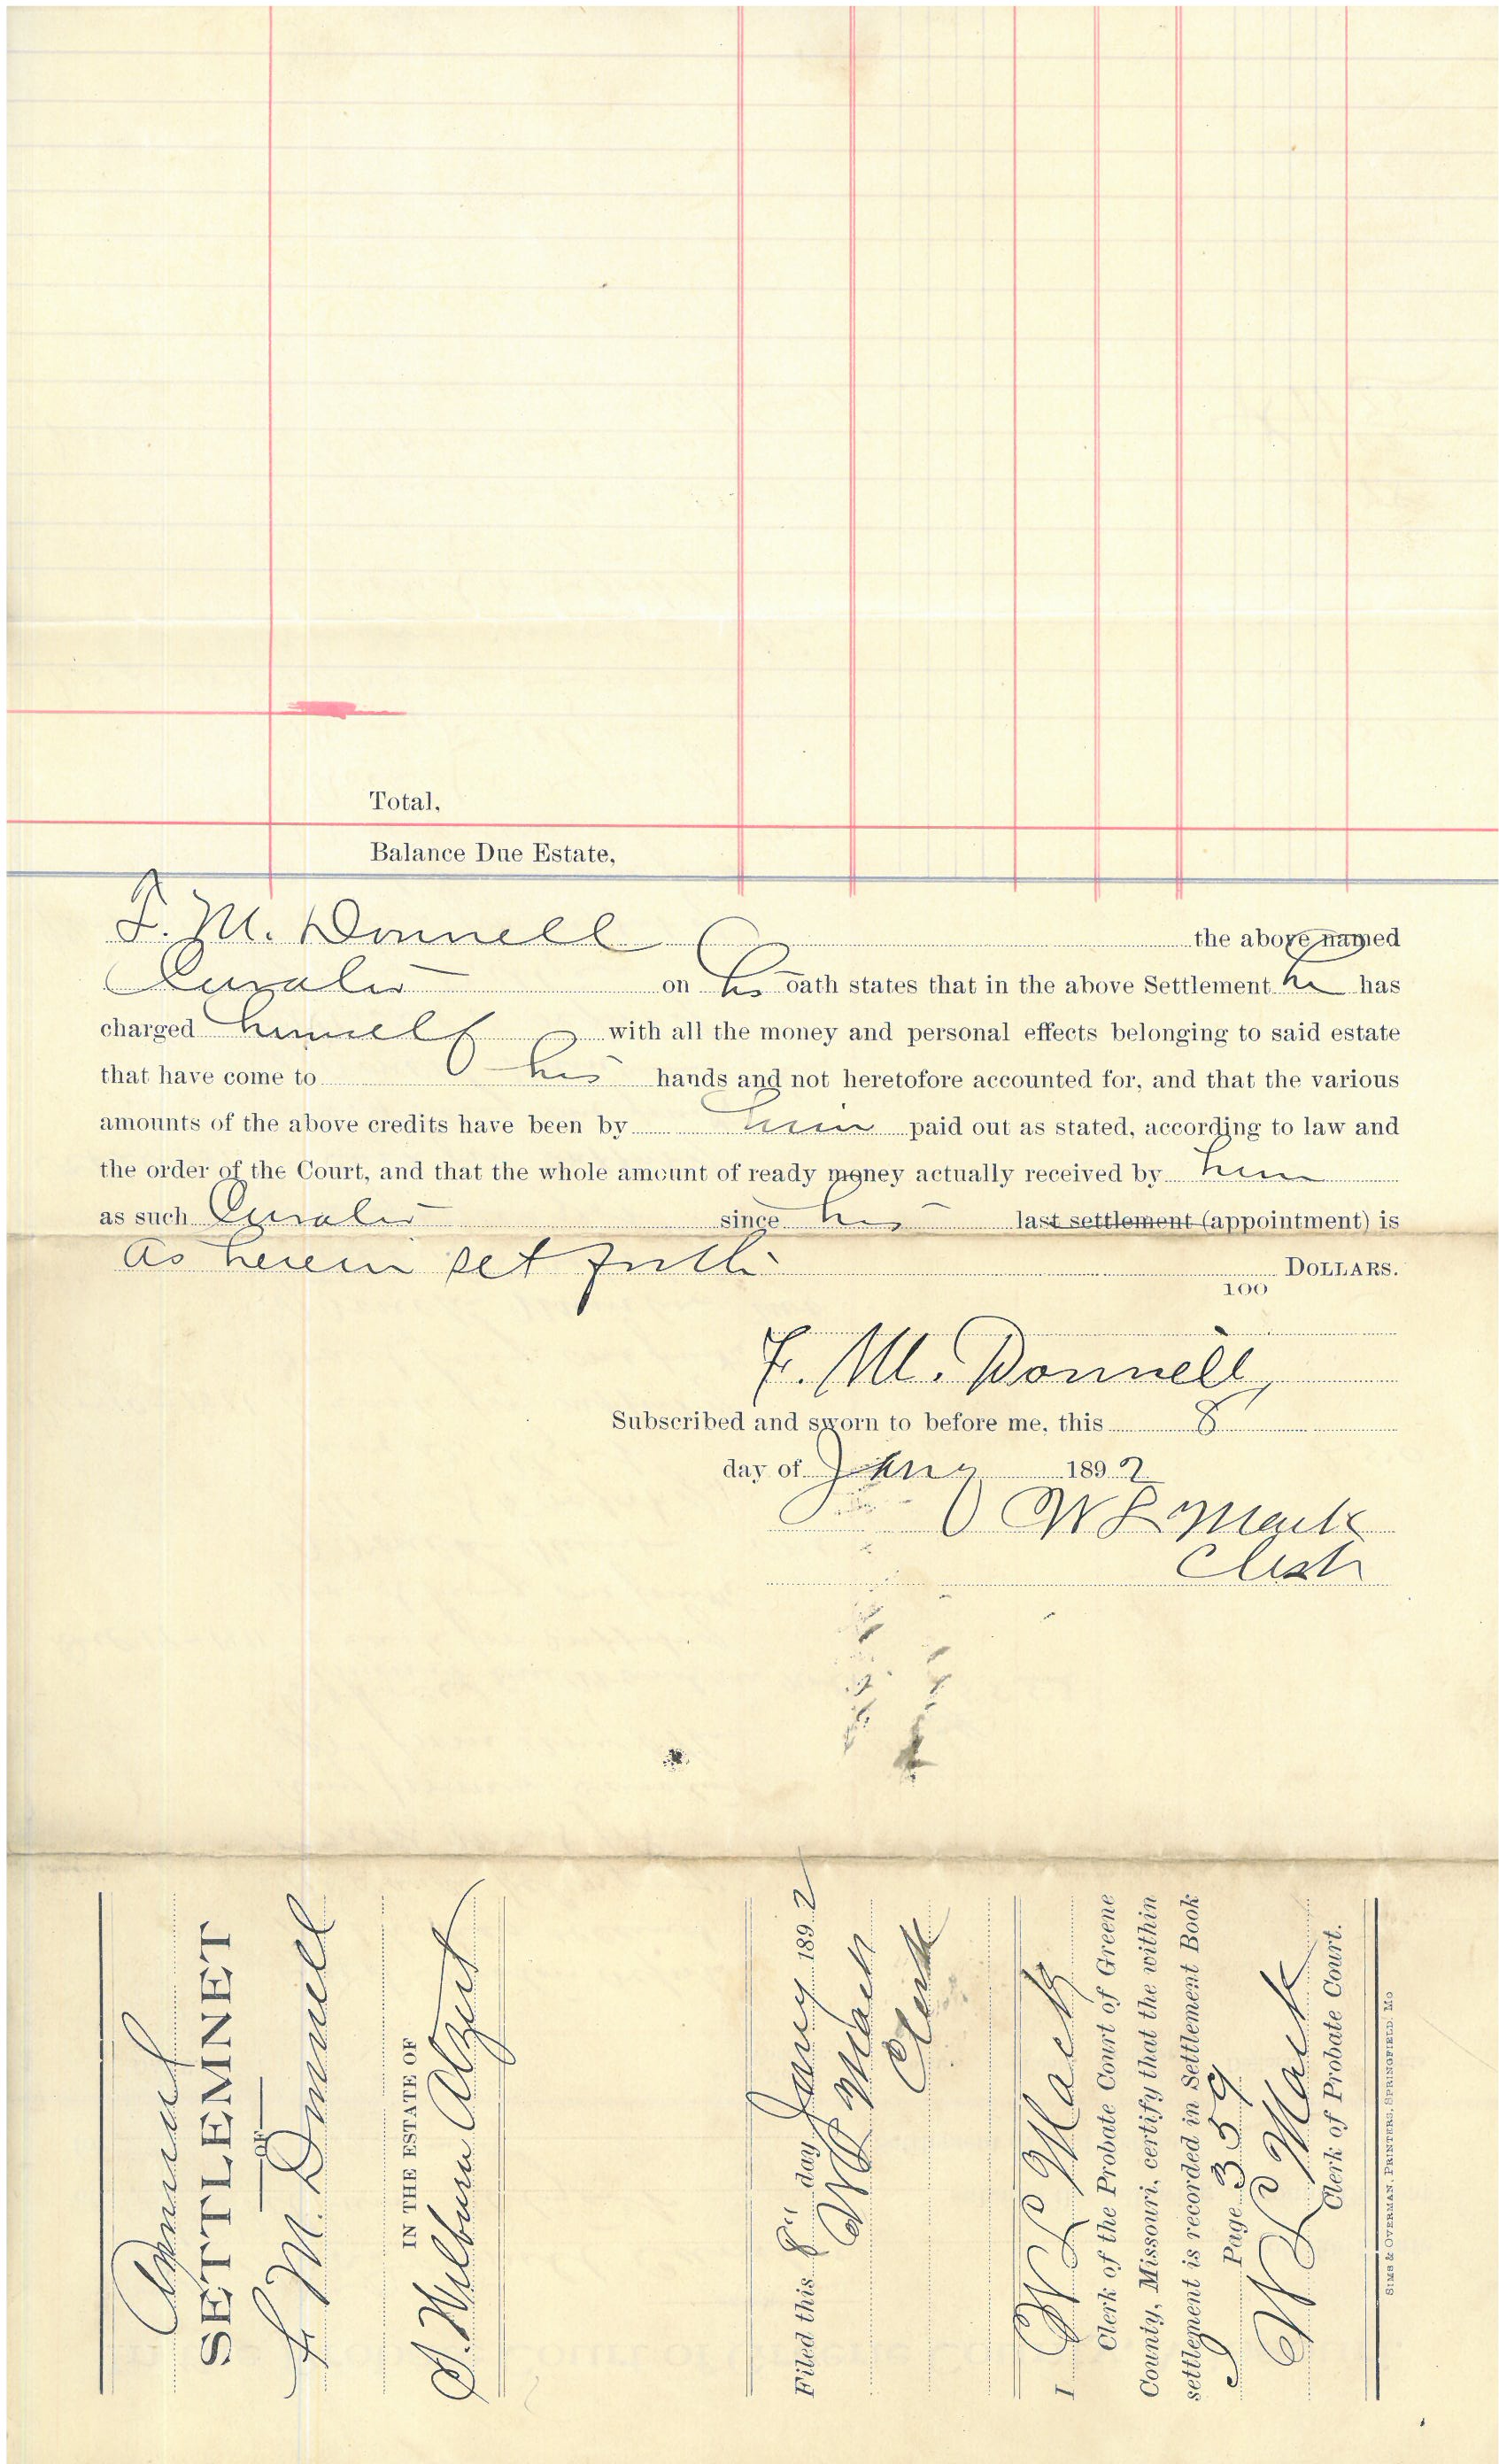 Total,
Balance Due Estate,
F. M. Donnell the above named
Curator on his oath states that in the above Settlement he has
charged himself with all the money and personal effects belonging to said estate
that have come to his hands and not heretofore accounted for, and that the various
amounts of the above credits have been by him paid out as stated, according to law and
the order of the Court, and that the whole amount of ready money actually received by him
as such Curator since his last settlement (appointment) is
as herein set forth DOLLARS.
100
F. M. Donnell,
Subscribed and sworn to before me, this 8
day of Jany 1892
W L Mack
Clerk
Annual
SETTLEMNET
OF
F M Donnell
IN THE ESTATE OF
S. Wilburn Alzent
Filed this 8" day Jany 1892
W L Mack
Clerk
I W L Mack
Clerk of the Probate Court of Greene
County, Missouri, certify that the within
settlement is recorded in Settlement Book
J Page 359
W L Mack
Clerk of Probate Court.
SIMS & OVERMAN, PRINTERS, SPRINGFIELD, MO